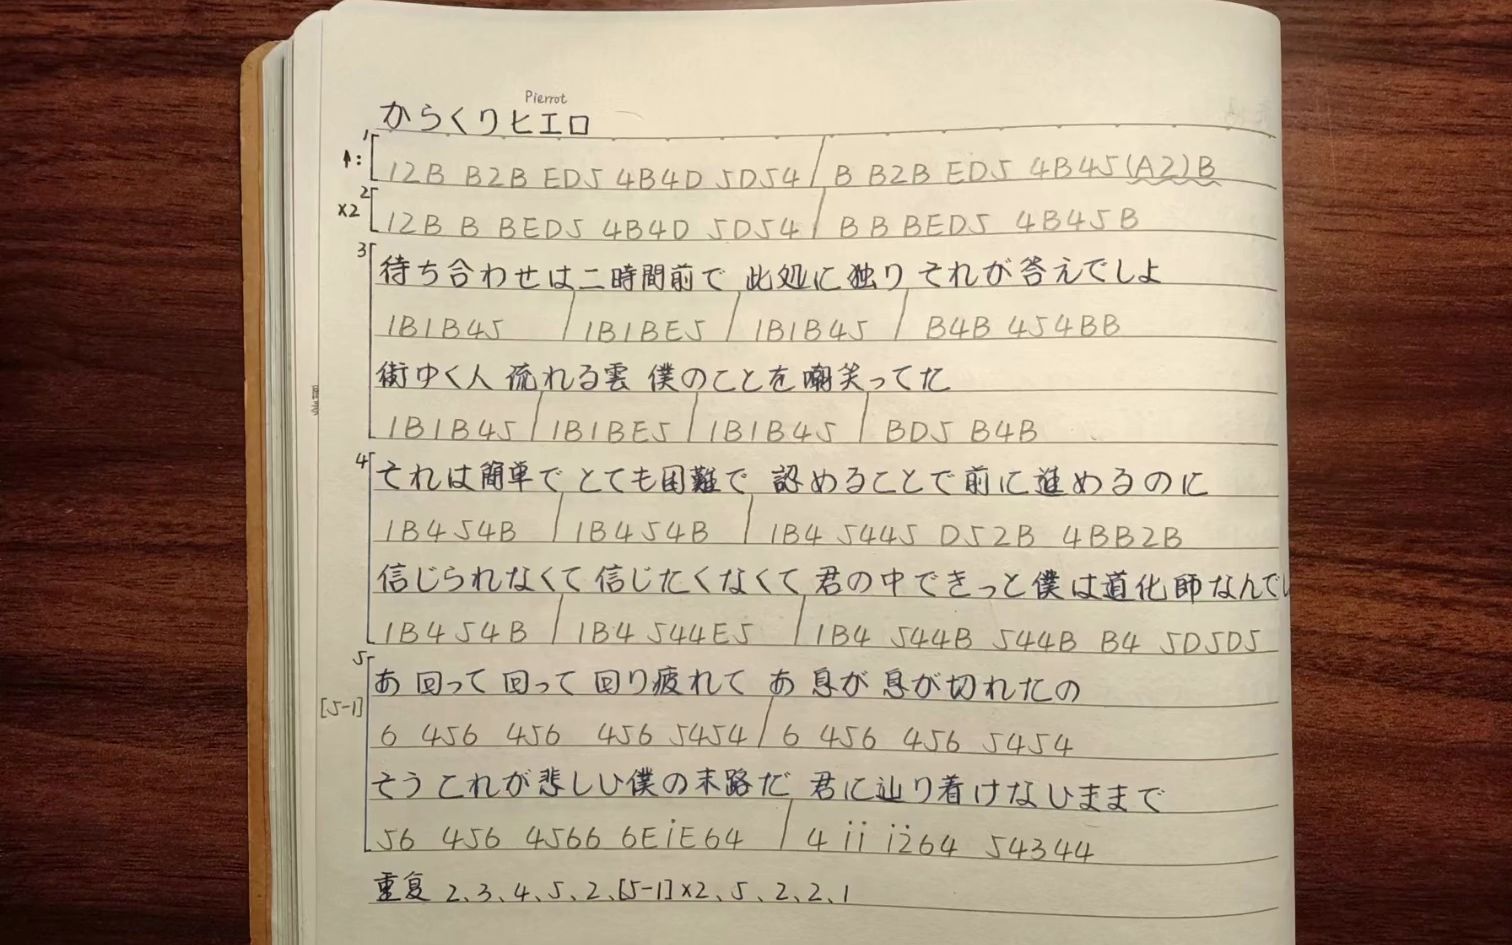 Pierrot
からくりピエロ
1
↑: 12B B2B ED5 4B4D 5D54 / B B2B ED5 4B45(A2)B
2
×2 12B B BED5 4B4D 5D54 / B B BED5 4B45B
3 待ち合わせは二時間前で 此処に独り それが答えでしよ
1B1B45 / 1B1BE5 / 1B1B45 / B4B 454BB
街ゆく人 流れる雲 僕のことを嘲笑ってた
1B1B45 / 1B1BE5 / 1B1B45 / BD5 B4B
4 それは簡単で とても困難で 認めることで前に進めるのに
1B454B / 1B454B / 1B4 5445 D52B 4BB2B
信じられなくて 信じたくなくて 君の中できっと僕は道化師なんでし
1B454B / 1B4 544E5 / 1B4 544B 544B B4 5D5D5
5 あ 回って 回って 回り疲れて あ 息が 息が切れたの
[5-1]
6 456 456 456 5454 / 6 456 456 5454
そう これが悲しい僕の末路だ 君に辿り着けないままで
56 456 4566 6Ei̇E64 / 4 i̇i̇ i̇2̇64 54344
重复 2、3、4、5、2、[5-1]×2、5、2、2、1